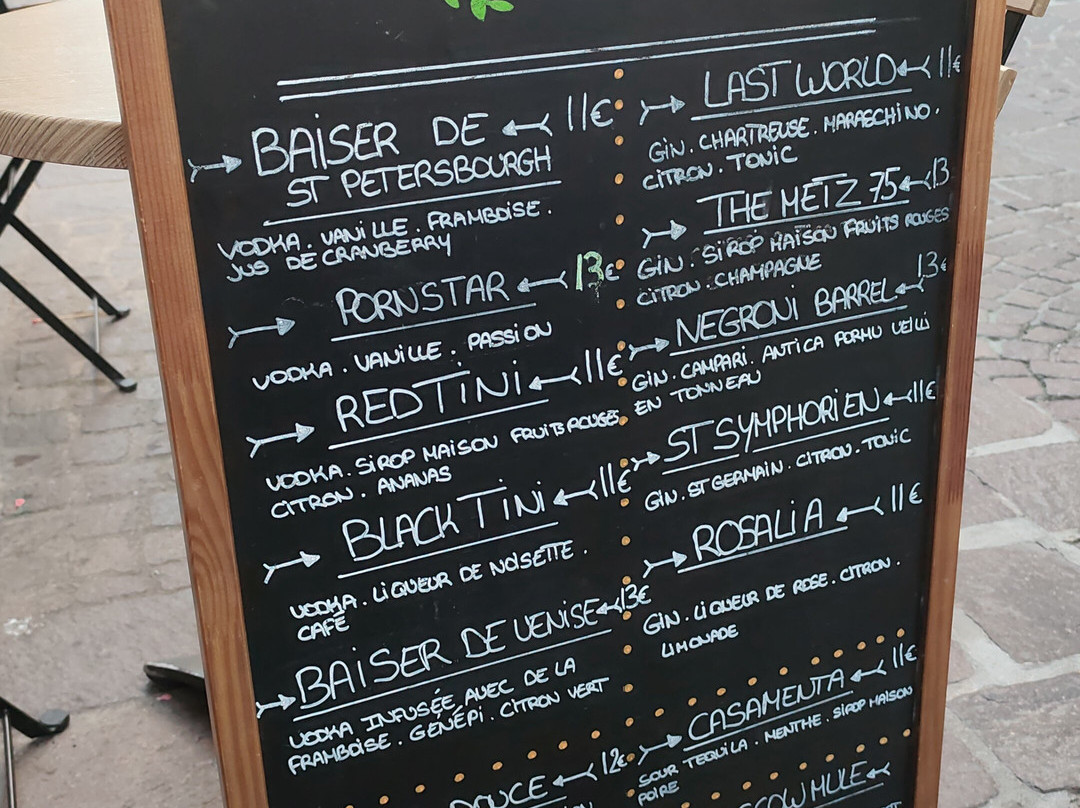 BAISER DE 11€
ST PETERSBOURGH
VODKA . VANILLE . FRAMBOISE .
JUS DE CRANBERRY
PORNSTAR 13€
VODKA . VANILLE . PASSION
REDTINI 11€
VODKA . SIROP MAISON FRUITS ROUGES
CITRON . ANANAS
BLACKTINI 11€
VODKA . LIQUEUR DE NOISETTE .
CAFÉ
BAISER DE VENISE 13€
VODKA INFUSÉE AVEC DE LA
FRAMBOISE . GÉNÉPI . CITRON VERT
DOUCE 12€
LAST WORLD 11€
GIN . CHARTREUSE . MARASCHINO .
CITRON . TONIC
THE METZ 75 13
GIN . SIROP MAISON FRUITS ROUGES
CITRON . CHAMPAGNE
NEGRONI BARREL 13€
GIN . CAMPARI . ANTICA FORMU VEILLI
EN TONNEAU
ST SYMPHORIEN 11€
GIN . ST GERMAIN . CITRON . TONIC
ROSALIA 11€
GIN . LIQUEUR DE ROSE . CITRON .
LIMONADE
CASAMENTA 11€
SOUR TEQUILA . MENTHE . SIROP MAISON
POIRE
SCOW MULE